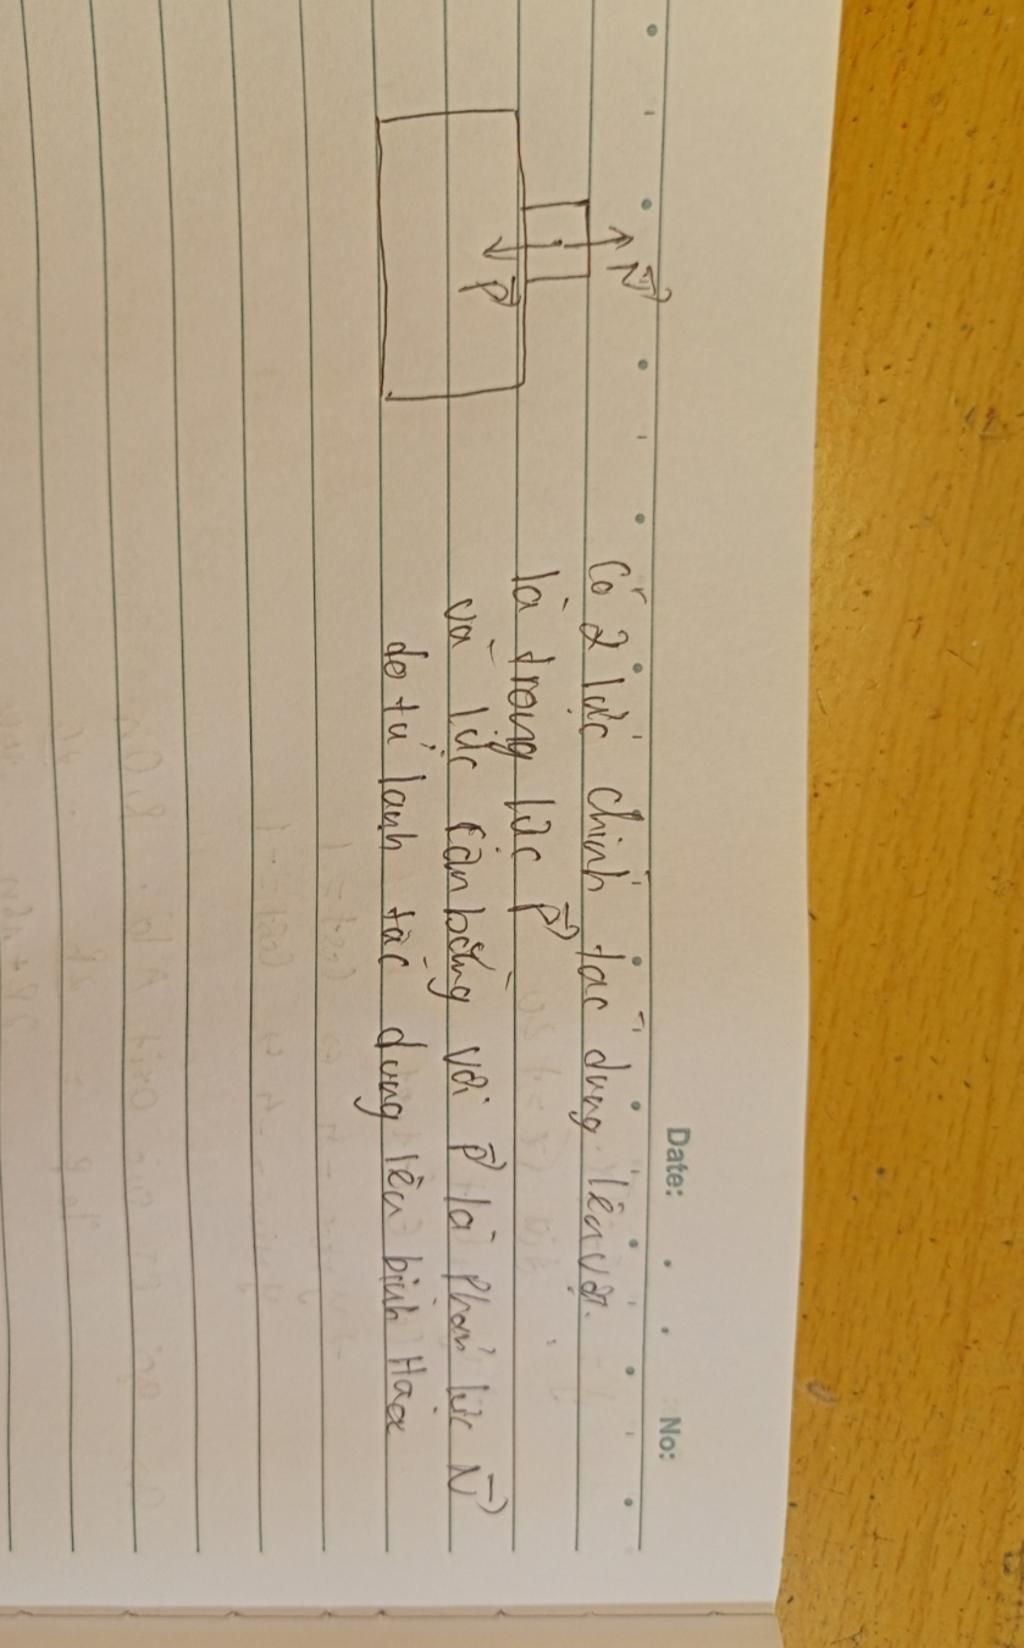 Date: No:
Có 2 lực chính tác dụng lên vật.
là trọng lực P
và lực cân bằng với P là phản lực N
do tủ lạnh tác dụng lên bình Hoa
N
P